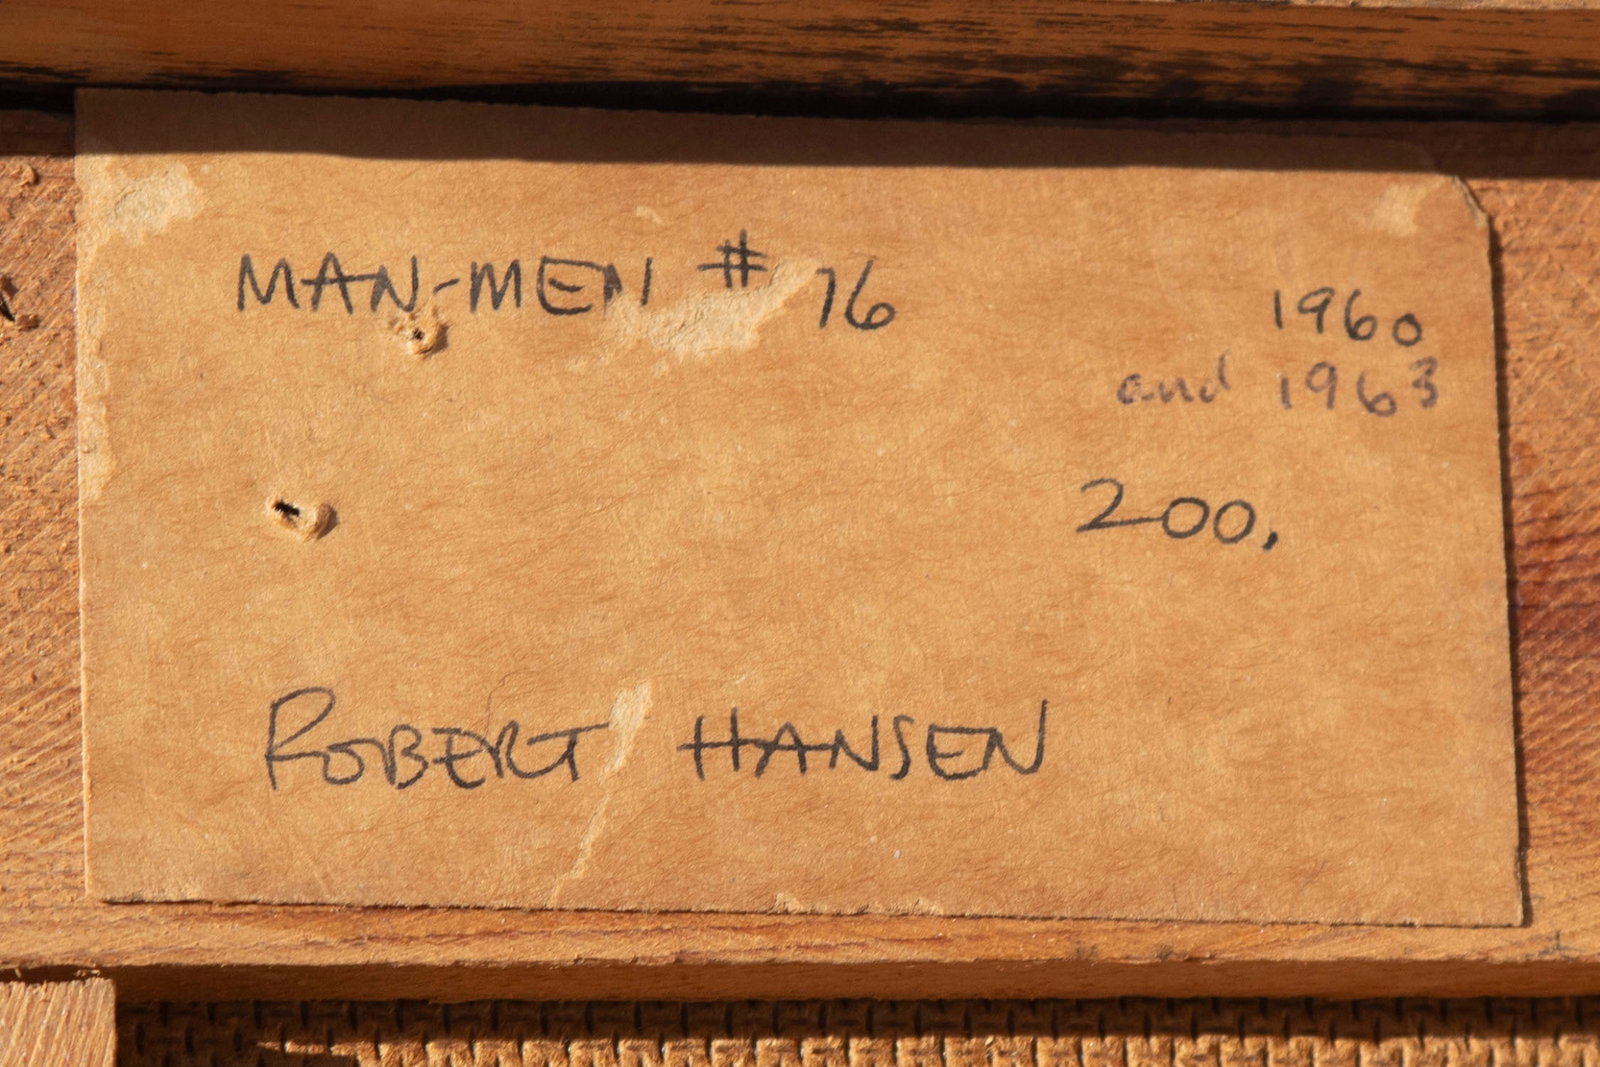 MAN-MEN # 76
1960
and 1963
200.
ROBERT HANSEN